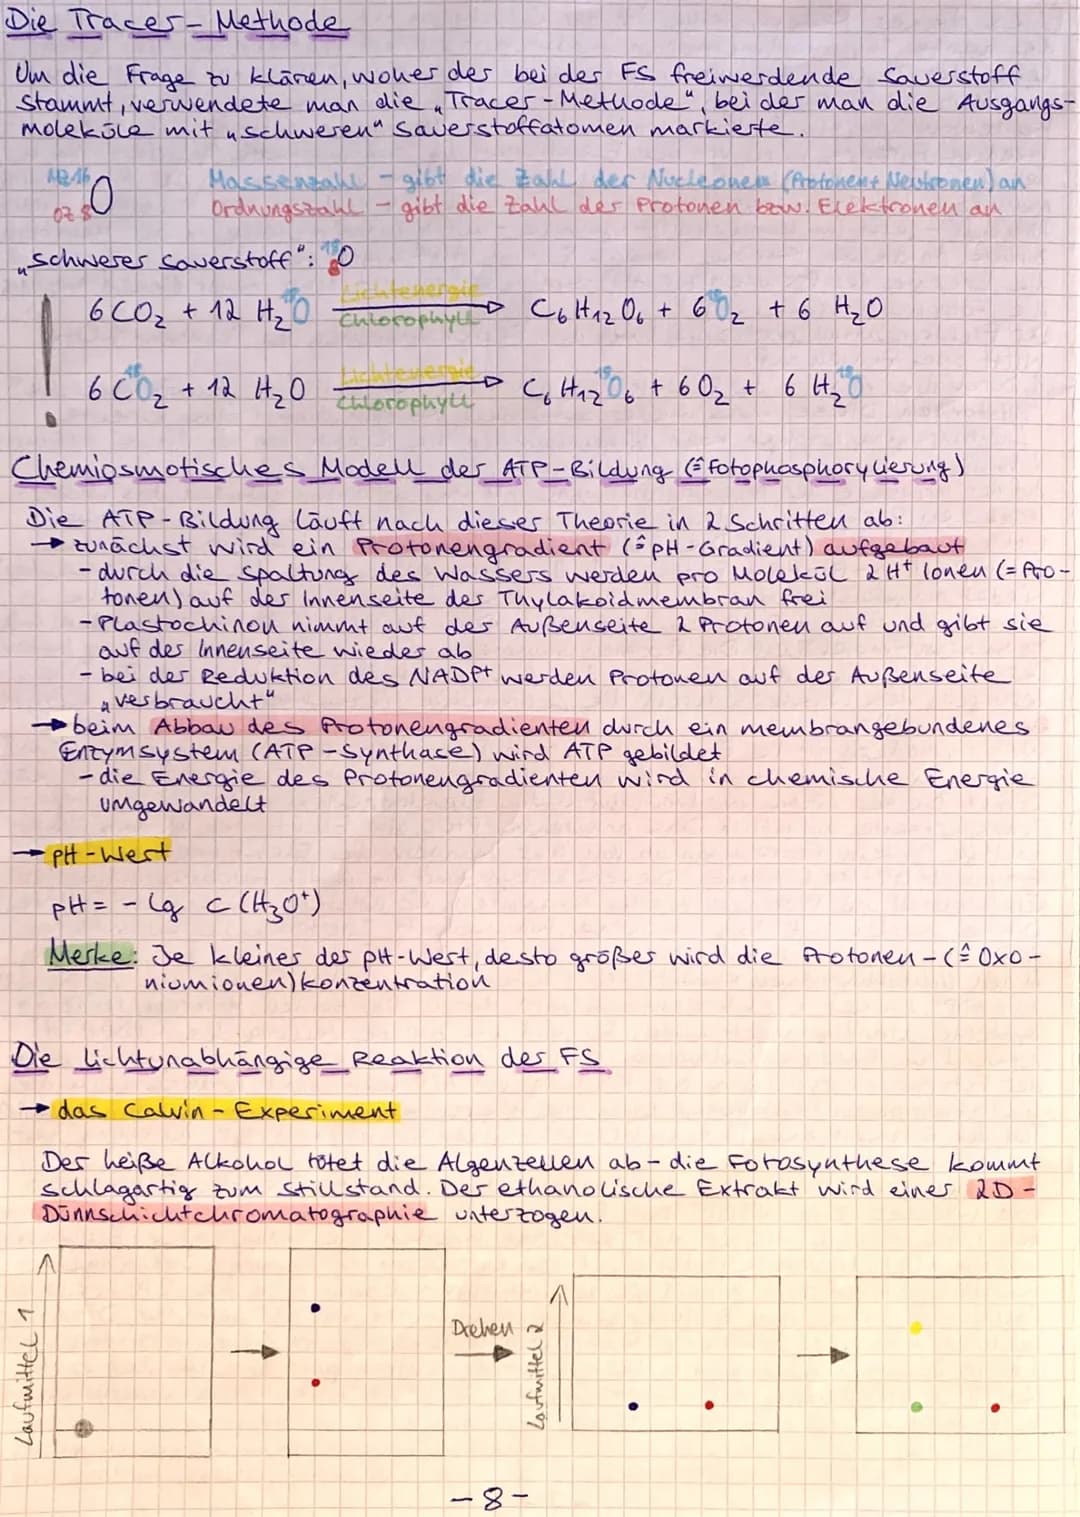 Die Tracer-Methode
Um die Frage zu klären, woher der bei der FS freiwerdende Sauerstoff
stammt, verwendete man die „Tracer-Methode", bei der man die Ausgangs-
moleküle mit „schweren" Sauerstoffatomen markierte.
MZ 16 O Massenzahl - gibt die Zahl der Nucleonen (Protonen+Neutronen) an
OZ 8 Ordnungszahl - gibt die Zahl der Protonen bzw. Elektronen an
„schwerer Sauerstoff": ¹⁸₈O
Lichtenergie
! 6 CO₂ + 12 H₂¹⁸O → C₆H₁₂O₆ + 6 ¹⁸O₂ + 6 H₂O
Chlorophyll
Lichtenergie
6 C¹⁸O₂ + 12 H₂O → C₆H₁₂¹⁸O₆ + 6 O₂ + 6 H₂¹⁸O
Chlorophyll
Chemiosmotisches Modell der ATP-Bildung (≙ Fotophosphorylierung)
Die ATP-Bildung läuft nach dieser Theorie in 2 Schritten ab:
→ zunächst wird ein Protonengradient (≙ pH-Gradient) aufgebaut
- durch die Spaltung des Wassers werden pro Molekül 2 H⁺ Ionen (=Pro-
tonen) auf der Innenseite der Thylakoidmembran frei
- Plastochinon nimmt auf der Außenseite 2 Protonen auf und gibt sie
auf der Innenseite wieder ab
- bei der Reduktion des NADP⁺ werden Protonen auf der Außenseite
„verbraucht"
→ beim Abbau des Protonengradienten durch ein membrangebundenes
Enzymsystem (ATP-Synthase) wird ATP gebildet
- die Energie des Protonengradienten wird in chemische Energie
umgewandelt
→ pH-Wert
pH = - lg c (H₃O⁺)
Merke: Je kleiner der pH-Wert, desto größer wird die Protonen-(≙ Oxo-
niumionen)konzentration
Die lichtunabhängige Reaktion der FS
→ das Calvin-Experiment
Der heiße Alkohol tötet die Algenzellen ab - die Fotosynthese kommt
schlagartig zum Stillstand. Der ethanolische Extrakt wird einer 2D-
Dünnschichtchromatographie unterzogen.
Laufmittel 1
Drehen
Laufmittel 2
-8-